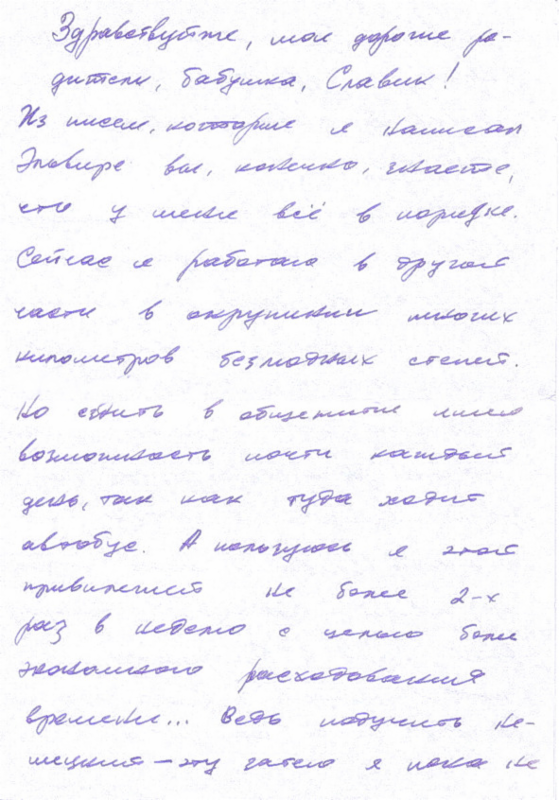 Здравствуйте, мои дорогие ро-
дители, бабушка, Славик!
Из писем, которые я написал
Эльвире вы, конечно, знаете,
что у меня всё в порядке.
Сейчас я работаю в другой
части в окружении многих
километров безлюдных степей.
Но ездить в общежитие имею
возможность почти каждый
день, так как туда ходит
автобус. А пользуюсь я этой
привилегией не более 2-х
раз в неделю с целью более
экономного расходования
времени... Ведь подучить не-
мецкий – эту затею я пока не